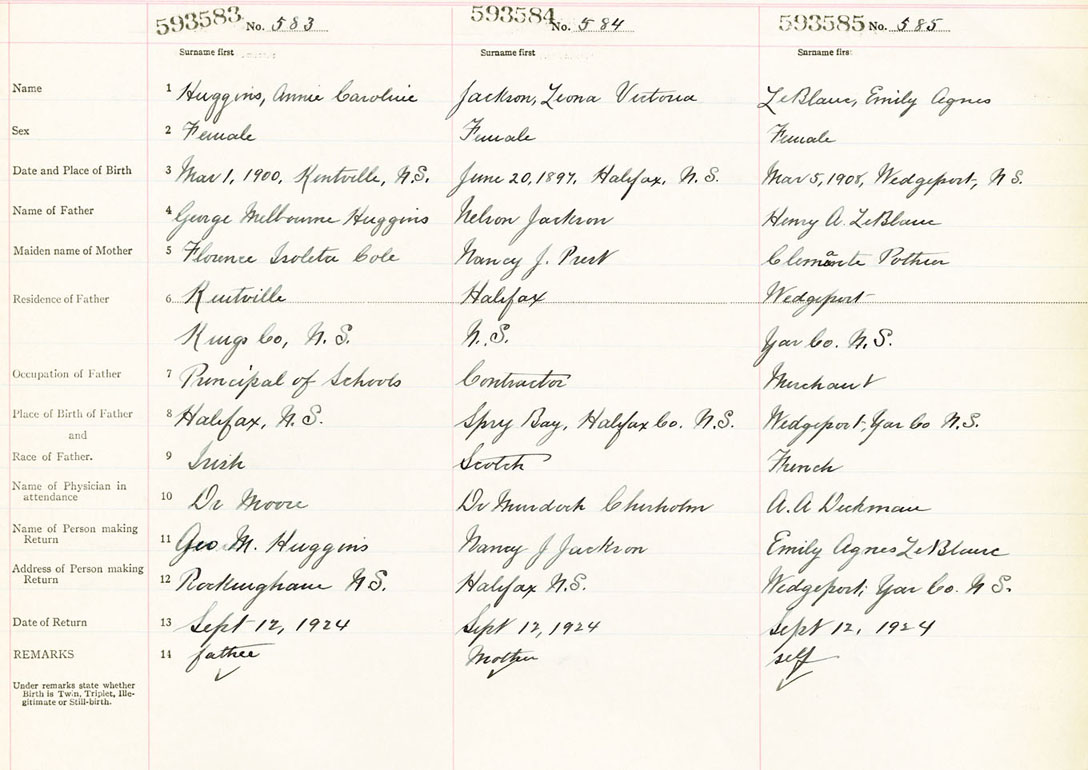 593583 No. 583 593584 No. 584 593585 No. 585
Surname first Surname first Surname first
Name 1 Huggins, Annie Caroline Jackson, Leona Victoria LeBlanc, Emily Agnes
Sex 2 Female Female Female
Date and Place of Birth 3 Mar 1, 1900, Kentville, N.S. June 20, 1897, Halifax, N.S. Mar 5, 1908, Wedgeport, N.S.
Name of Father 4 George Melbourne Huggins Nelson Jackson Henry A. LeBlanc
Maiden name of Mother 5 Florence Isoleta Cole Nancy J. Prest Pothier
Residence of Father 6 Kentville Halifax Wedgeport
Kings Co, N.S. N.S. Yar Co. N.S.
Occupation of Father 7 Principal of Schools Contractor Merchant
Place of Birth of Father 8 Halifax, N.S. Spry Bay, Halifax Co. N.S. Wedgeport, Yar Co N.S.
and
Race of Father. 9 Irish Scotch French
Name of Physician in
attendance 10 Dr Moore Dr Murdoch Chisholm A. A Dickman
Name of Person making
Return 11 Geo M. Huggins Nancy J Jackson Emily Agnes LeBlanc
Address of Person making
Return 12 Rockingham N.S. Halifax N.S. Wedgeport, Yar Co. N S.
Date of Return 13 Sept 12, 1924 Sept 12, 1924 Sept 12, 1924
REMARKS 14 father Mother self
Under remarks state whether
Birth is Twin, Triplet, Ille-
gitimate or Still-birth.